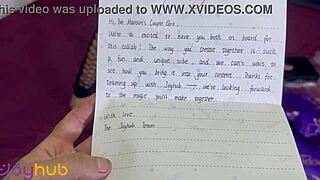 his video was uploaded to WWW.XVIDEOS.COM
Hi, The Maroun's Couple Care...
We're so excited to have you both on board for
this collab! The way you create together is such
a fun and unique vibe, and we can't wait to
see how you bring it into your content. Thanks for
teaming up with Joyhub, we're looking forward
to the magic you'll make together.
With love,
The Joyhub Team
Joyhub